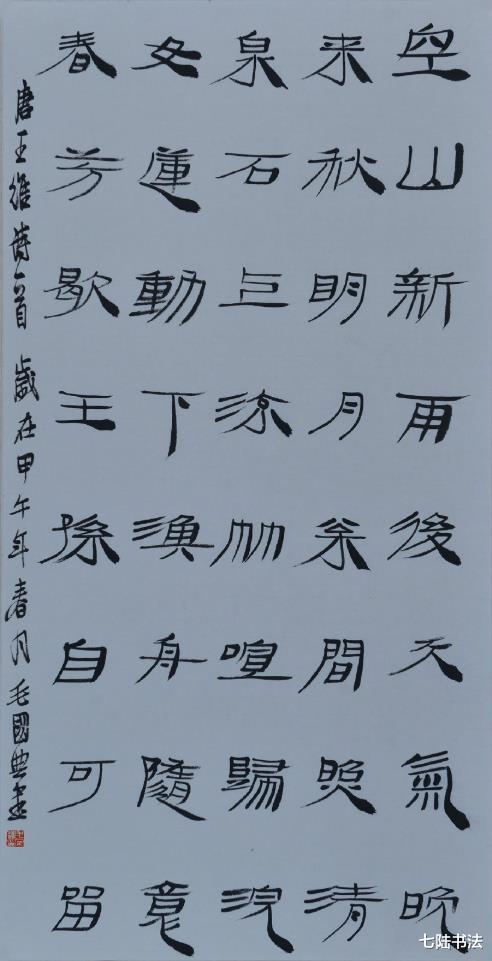 空山新雨後天氣晚
来秋明月枀間照清
泉石上流竹喧歸浣
女蓮動下漁舟隨意
春芳歇王孫自可留
唐王維詩一首 歲在甲午年春月毛國典書
七陆书法